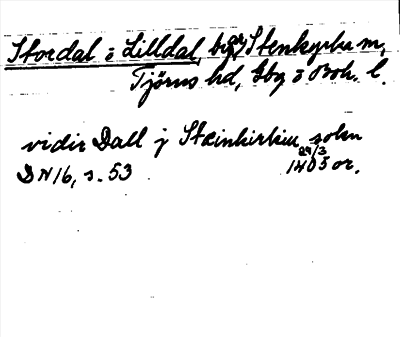 Stordal o Lilldal, byar, Stenkyrka m,
Tjörns hd, Gbg o Boh. l.
vidir Dall j Steinkirkiu sokn
29/3
DN 16, s. 53 1405 or.